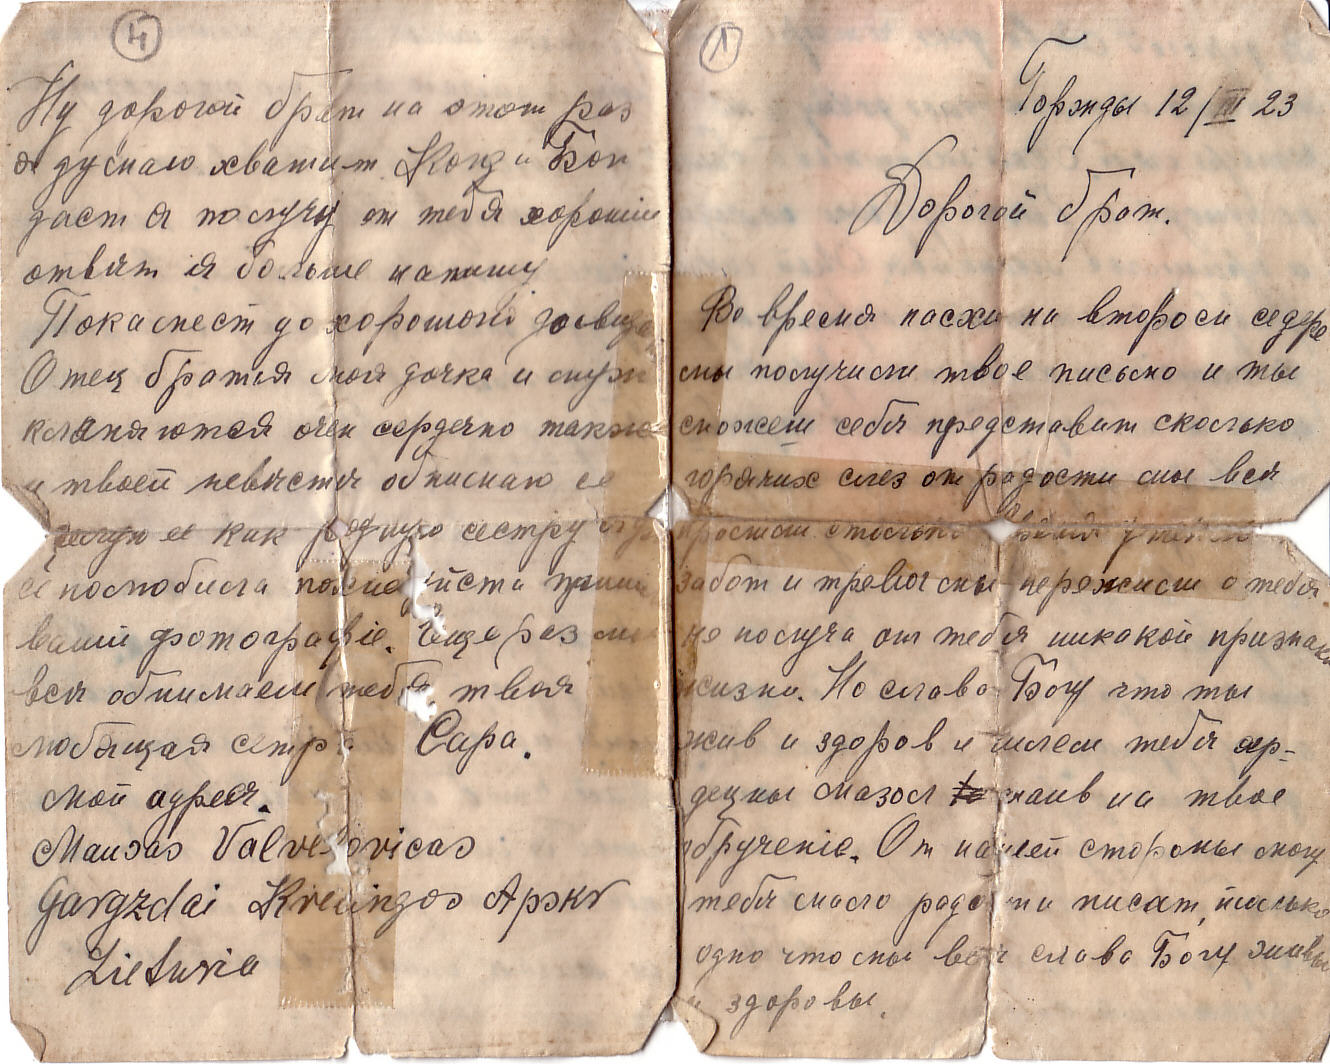 4
Ну дорогой брат на этот раз
я думаю хватит. Когда Бог
даст я получу от тебя хорошие
ответ я больше напишу
Покамест до хорошого
Отец братья моя дочка и муж
кланяются очен сердечно также
и твоей невести обнимаю ее
целую ее как родную сестру
ее полюбила пожалуйста
ваши фотографіе. Еще раз мы
все обнимаем тебя твоя
любящая сетра Сара.
мой адрес.
Mausas Valvesovicas
Gargzdai Kretingos Apskr
Lietuvia
1
Горжды 12/III 23
Дорогой брат.
Во время пасхи на втором седере
мы получили твое письмо и ты
можеш себя представит сколько
горячих слез от радости мы все
забот и тревог мы пережили о тебя
не получа от тебя никакой признак
жизни. Но слава Богу что ты
жив и здоров и шлем тебя сер-
децны мазол на твое
обрученіе. От нашей стороны могу
тебя мало радости писат, только
одно что мы все слава Богу живы
и здоровы.